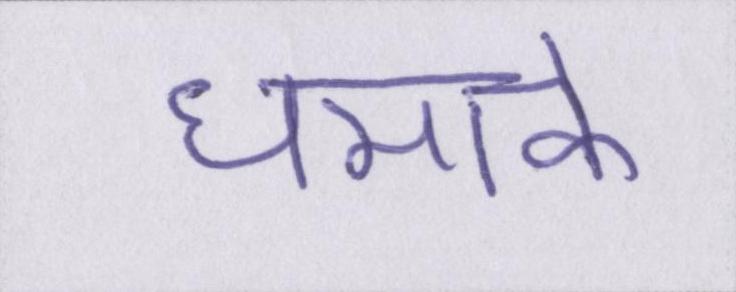 धमाके